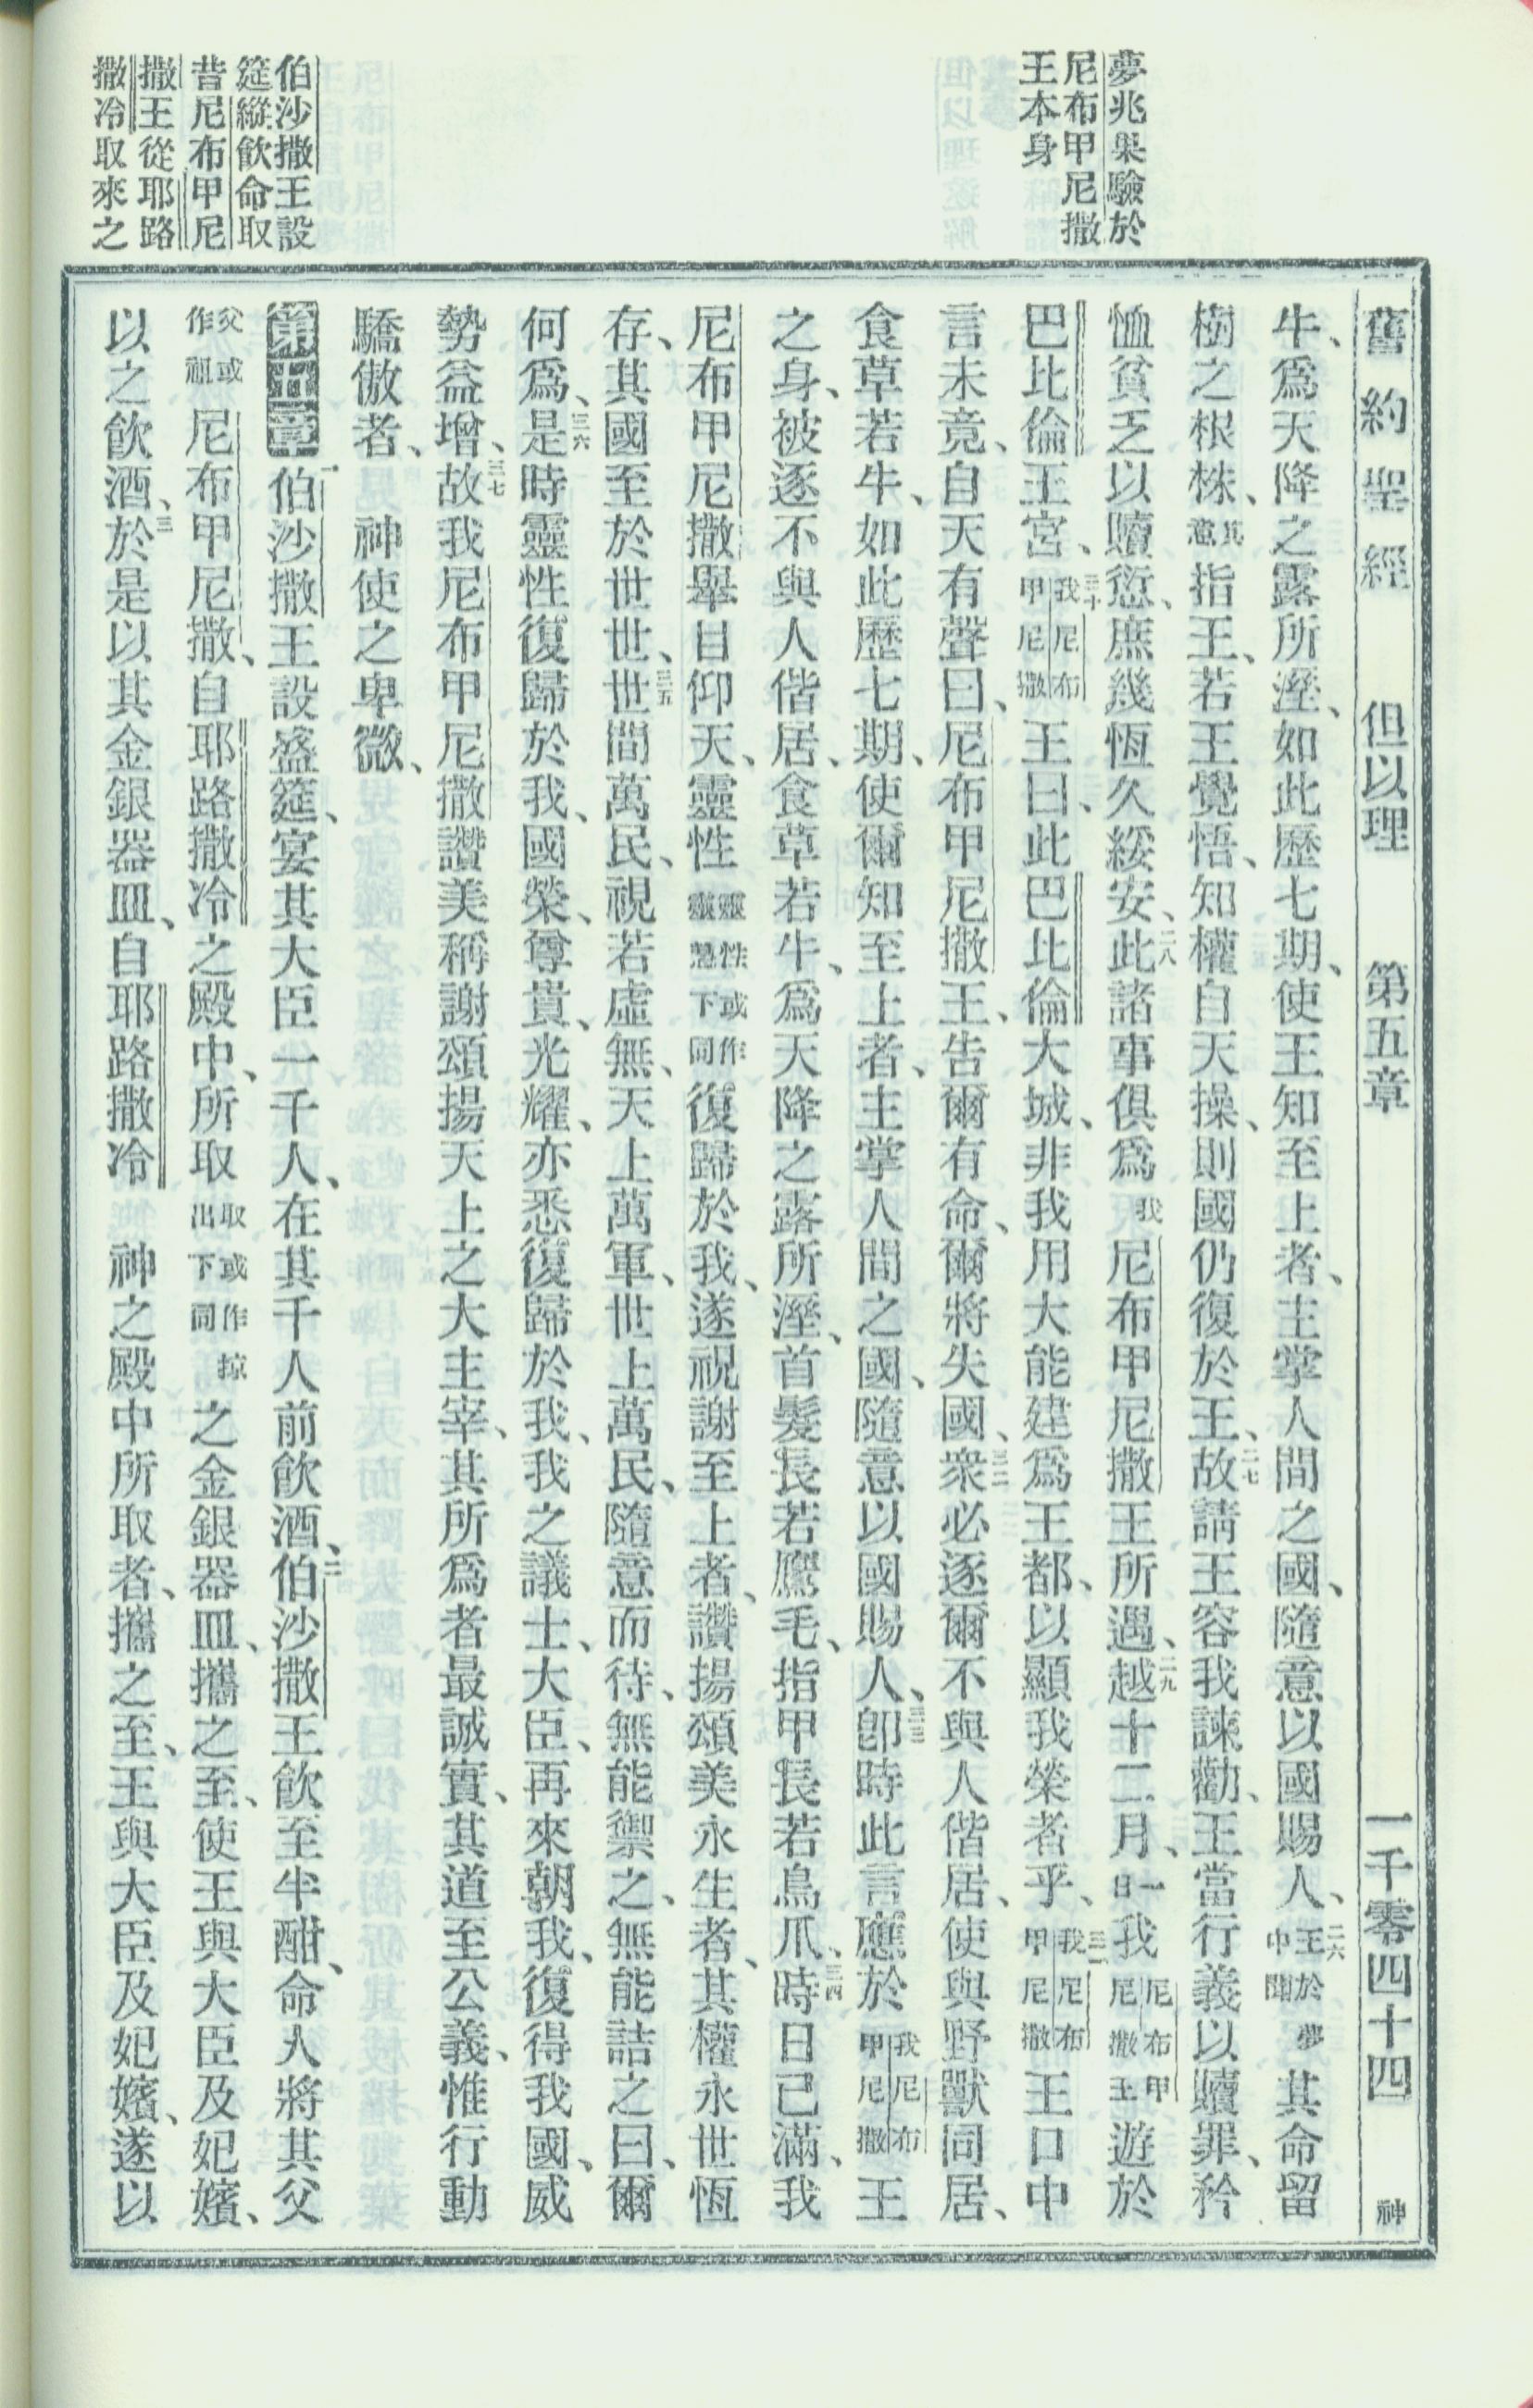 夢兆果驗於
尼布甲尼撒
王本身
伯沙撒王設
筵縱飲命取
昔尼布甲尼
撒王從耶路
撒冷取來之
舊約聖經 但以理 第五章 一千零四十四 神
牛、爲天降之露所溼、如此歷七期、使王知至上者、主掌人間之國、隨意以國賜人、二六王於夢中聞其命留
樹之根株、其意指王、若王覺悟、知權自天操、則國仍復於王、二七故請王容我諫勸、王當行義以贖罪、矜
恤貧乏以贖愆、庶幾恆久綏安、二八此諸事俱爲我尼布甲尼撒王所遇、二九越十二月、一日我尼布甲尼撒王遊於
巴比倫王宮、三十我尼布甲尼撒王曰、此巴比倫大城、非我用大能建爲王都、以顯我榮者乎、三一我尼布甲尼撒王口中
言未竟、自天有聲曰、尼布甲尼撒王、告爾有命、爾將失國、三二衆必逐爾不與人偕居、使與野獸同居、
食草若牛、如此歷七期、使爾知至上者、主掌人間之國、隨意以國賜人、三三卽時此言應於我尼布甲尼撒王
之身、被逐不與人偕居、食草若牛、爲天降之露所溼、首髮長若鷹毛、指甲長若鳥爪、三四時日已滿、我
尼布甲尼撒舉目仰天、靈性靈性或作靈慧下同復歸於我、遂視謝至上者、讚揚頌美永生者、其權永世恆
存、其國至於世世、三五世間萬民、視若虛無、天上萬軍、世上萬民、隨意而待、無能禦之、無能詰之曰、爾
何爲、三六是時靈性復歸於我、國榮、尊貴、光耀、亦悉復歸於我、我之議士、大臣、再來朝我、復得我國、威
勢益增、三七故我尼布甲尼撒讚美稱謝頌揚天上之大主宰、其所爲者最誠實、其道至公義、惟行動
驕傲者、 神使之卑微、
第五章 一伯沙撒王設盛筵、宴其大臣一千人、在其千人前飲酒、二伯沙撒王飲至半酣、命人將其父
父或作祖尼布甲尼撒、自耶路撒冷之殿中、所取取或作掠出下同之金銀器皿、攜之至、使王與大臣及妃嬪、
以之飲酒、三於是以其金銀器皿、自耶路撒冷 神之殿中所取者、攜之至、王與大臣及妃嬪、遂以